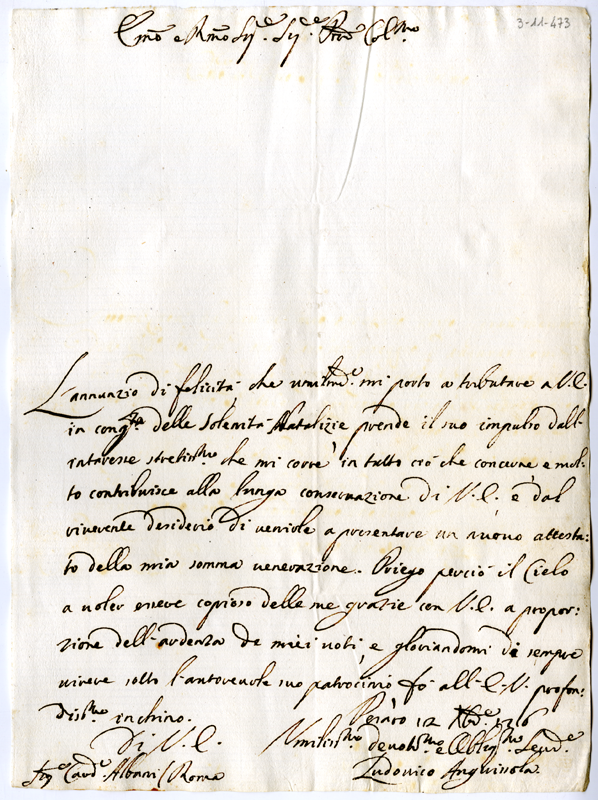 3-11-473
Emo e Rmo Sig.re Sig.re Pne Col.mo
L'annunzio di felicità che umilm.e mi porto a tributare a V.E.
in cong.ra delle Solenità Natalizie prende il suo impulso dall'
interesse stretiss.mo che mi corre in tutto ciò che concerne e mol-
to contribuisce alla lunga conservazione di V.E. e dal
riverente desiderio di venirle a presentare un nuovo attesta-
to della mia somma venerazione. Priego perciò il Cielo
a voler essere copioso delle sue grazie con V.E. a propor-
zione dell'ardenza de miei voti, e gloriandomi di sempre
vivere sotto l'autorevole suo patrocinio fò all'E.V. profon-
diss.mo inchino.
Pesaro 12 Xbre 1716
Di V.E.
Umiliss.mo devotis.mo e Oblig.mo Serv.e
Sig.e Card.e Albani / Roma
Ludovico Anguissola